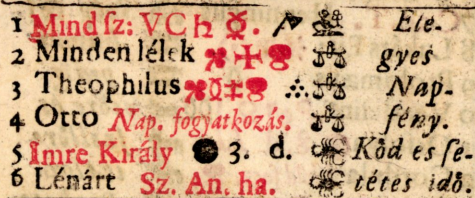 1 Mindſz: VC ♄ Ele-
2 Minden lélek gyes
3 Theophilus Nap-
4 Otto Nap. fogyatkozás. fény.
5 Imre Király 3. d. Köd es ſé-
6 Lénárt Sz. An. ha. tétes idö.